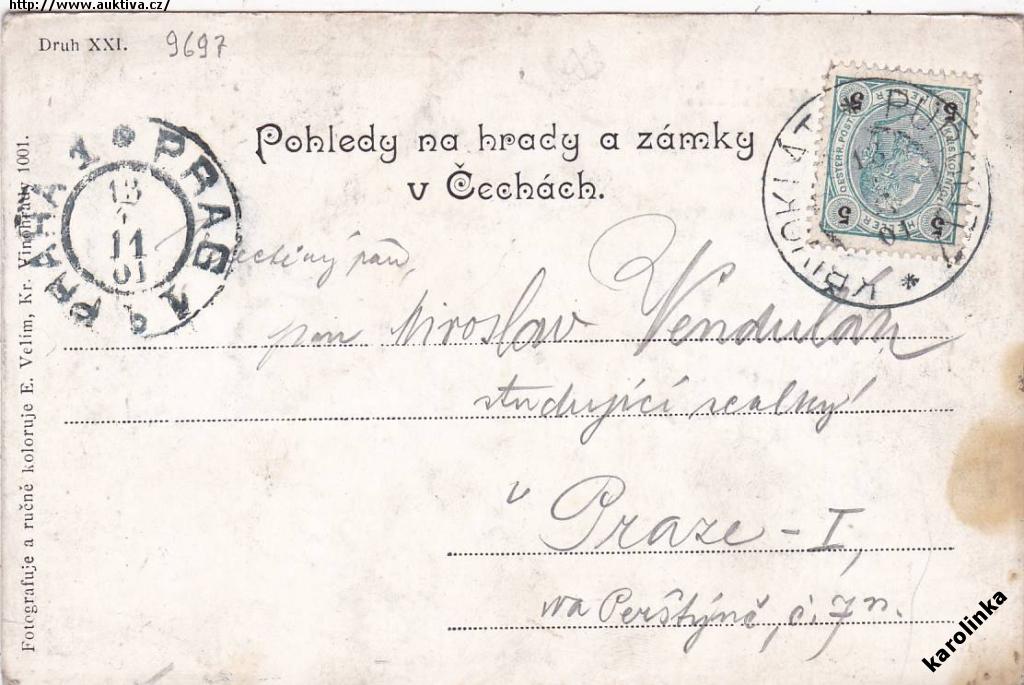 http://www.auktiva.cz/
Druh XXI.
9697
Pohledy na hrady a zámky
v Čechách.
PRAG 1 PRAHA 1
13
11
01
KŘIVOKLÁT
01
5 5 5 5
pán,
pan Miroslav Vendulák
studující reálky
v Praze - I,
na Perštýně, č. 7n.
Fotografuje a ručně koloruje E. Velim, Kr. Vinohrady 1001.
karolinka